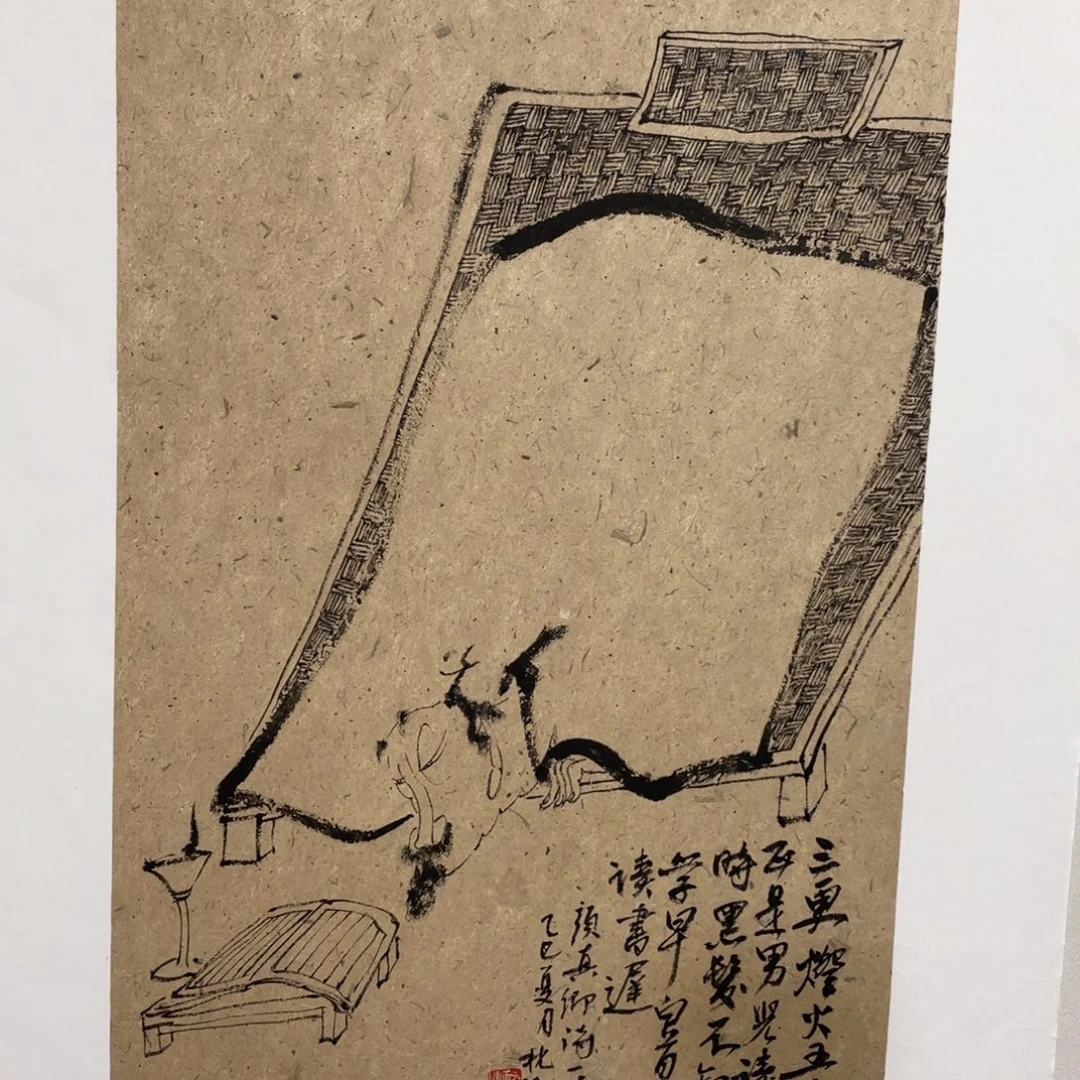 三更燈火五
正是男兒读
時黑髮不知
学早白首
读書遲
顔真卿詩一
乙巳夏月